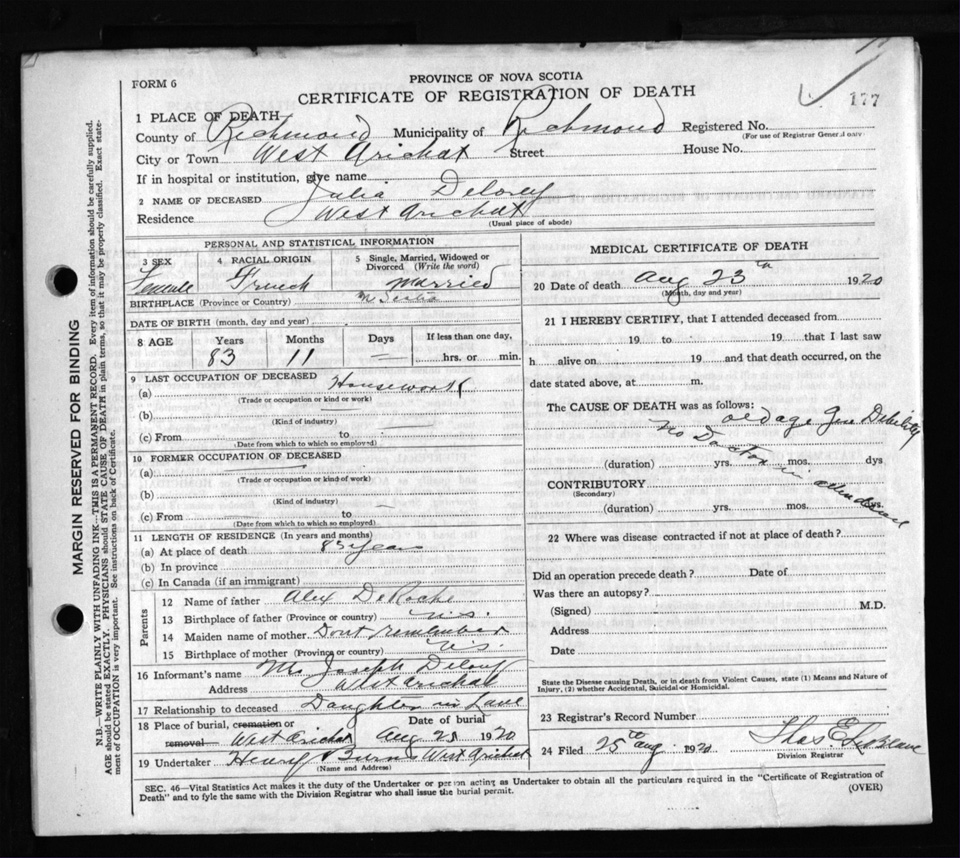 FORM 6
PROVINCE OF NOVA SCOTIA
CERTIFICATE OF REGISTRATION OF DEATH
177
1 PLACE OF DEATH
County of Richmond Municipality of Richmond Registered No.
(For use of Registrar General only)
City or Town West Arichat Street House No.
If in hospital or institution, give name
2 NAME OF DECEASED Julia Delorey
Residence West Arichat
(Usual place of abode)
PERSONAL AND STATISTICAL INFORMATION
3 SEX 4 RACIAL ORIGIN 5 Single, Married, Widowed or Divorced (Write the word)
Female French Married
BIRTHPLACE (Province or Country) N Scotia
DATE OF BIRTH (month, day and year)
8 AGE Years Months Days If less than one day,
83 11 — hrs. or min.
9 LAST OCCUPATION OF DECEASED
(a) Housework
(Trade or occupation or kind or work)
(b)
(Kind of industry)
(c) From to
(Date from which to which so employed)
10 FORMER OCCUPATION OF DECEASED
(a)
(Trade or occupation or kind of work)
(b)
(Kind of industry)
(c) From to
(Date from which to which so employed)
11 LENGTH OF RESIDENCE (In years and months)
(a) At place of death 83 years
(b) In province
(c) In Canada (if an immigrant)
Parents
12 Name of father Alex DeRoche
13 Birthplace of father (Province or country) N.S.
14 Maiden name of mother Dont remember
15 Birthplace of mother (Province or country) N.S.
16 Informant's name Mrs Joseph Delorey
Address West Arichat
17 Relationship to deceased Daughter in Law
18 Place of burial, cremation or removal West Arichat Date of burial Aug 25 1920
19 Undertaker Henry Burns West Arichat
(Name and Address)
MEDICAL CERTIFICATE OF DEATH
20 Date of death Aug 23th 1920
(Month, day and year)
21 I HEREBY CERTIFY, that I attended deceased from
19 to 19 that I last saw
h alive on 19 and that death occurred, on the
date stated above, at m.
The CAUSE OF DEATH was as follows:
old age Gen Debility
No Doctor in attendance
(duration) yrs. mos. dys
CONTRIBUTORY
(Secondary)
(duration) yrs. mos. dys.
22 Where was disease contracted if not at place of death?
Did an operation precede death? Date of
Was there an autopsy?
(Signed) M.D.
Address
Date
State the Disease causing Death, or in death from Violent Causes, state (1) Means and Nature of Injury, (2) whether Accidental, Suicidal or Homicidal.
23 Registrar's Record Number
24 Filed 25th Aug 1920 Thos E LeBlanc
Division Registrar
SEC. 46—Vital Statistics Act makes it the duty of the Undertaker or person acting as Undertaker to obtain all the particulars required in the "Certificate of Registration of
Death" and to fyle the same with the Division Registrar who shall issue the burial permit.
(OVER)
MARGIN RESERVED FOR BINDING
N.B.—WRITE PLAINLY WITH UNFADING INK—THIS IS A PERMANENT RECORD. Every item of information should be carefully supplied.
AGE should be stated EXACTLY. PHYSICIANS should STATE CAUSE OF DEATH in plain terms, so that it may be properly classified. Exact state-
ment of OCCUPATION is very important. See instructions on back of Certificate.